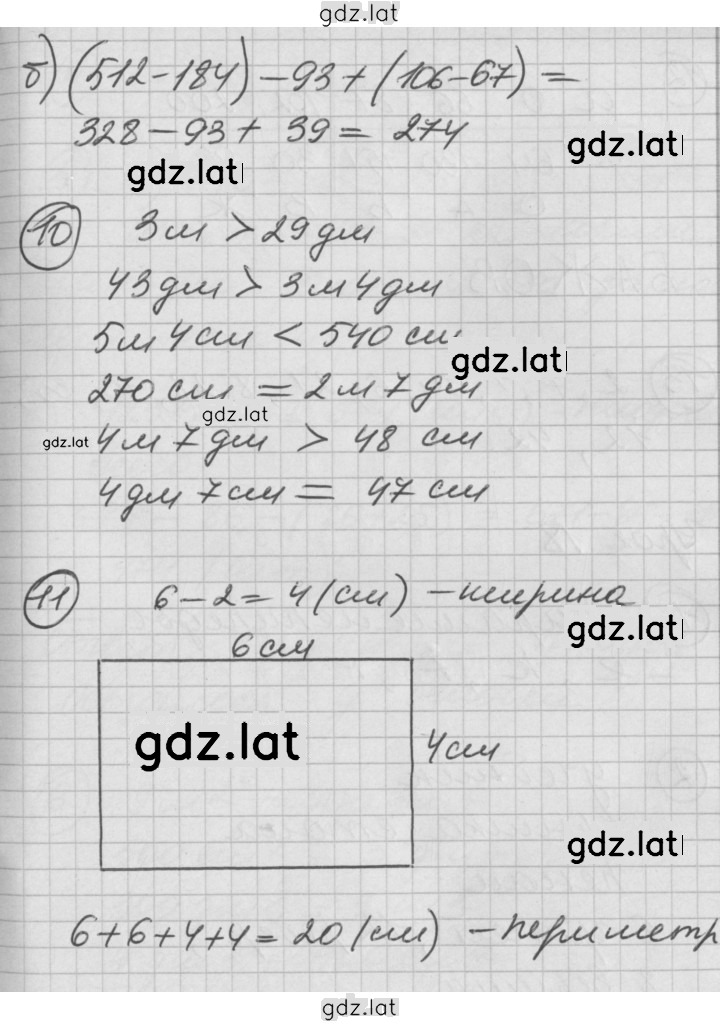 gdz.lat
б) (512-184) - 93 + (106-67) =
328 - 93 + 39 = 274
gdz.lat
gdz.lat
10 3м > 29дм
43дм > 3м 4дм
5м 4см < 540 см
gdz.lat
270 см = 2м 7дм
gdz.lat
gdz.lat
4м 7дм > 48 см
4дм 7см = 47 см
11 6 - 2 = 4 (см) - ширина
gdz.lat
6 см
gdz.lat
4см
gdz.lat
6+6+4+4 = 20 (см) - периметр
gdz.lat